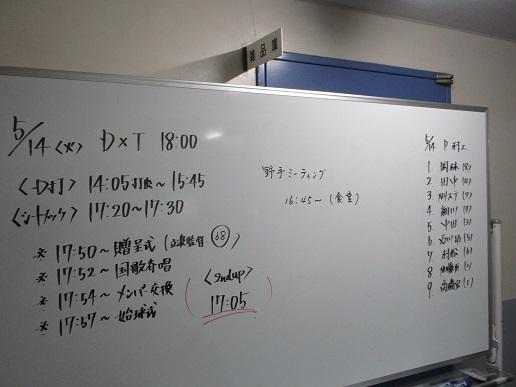 備品庫
5/14 <火> D×T 18:00
<D打> 14:05頃~15:45
<シートノック> 17:20~17:30
※ 17:50~贈呈式 (立浪監督 68)
※ 17:52~国歌斉唱
※ 17:54~メンバー交換
※ 17:57~始球式
<2ndup>
17:05
野手ミーティング
16:45~(食堂)
5/14 P 村上
1 岡林 (8)
2 田中 (4)
3
4 細川 (9)
5 中田 (3)
6
7 村松 (6)
8 加藤匠 (2)
9 高橋宏 (1)